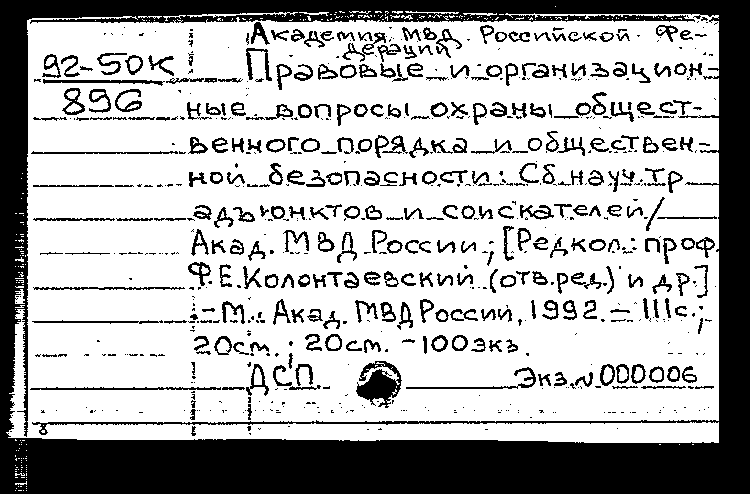 Академия МВД Российской Фе-
дераций
92-50К
896
Правовые и организацион-
ные вопросы охраны общест-
венного порядка и обществен-
ной безопасности: Сб.науч.тр
адъюнктов и соискателей/
Акад. МВД России; [Редкол.: проф.
Ф.Е.Колонтаевский (отв.ред.) и др.]
.-М.: Акад. МВД России, 1992.- 111с.;
20см.; 20см. -100экз.
ДСП Экз.№000006
8